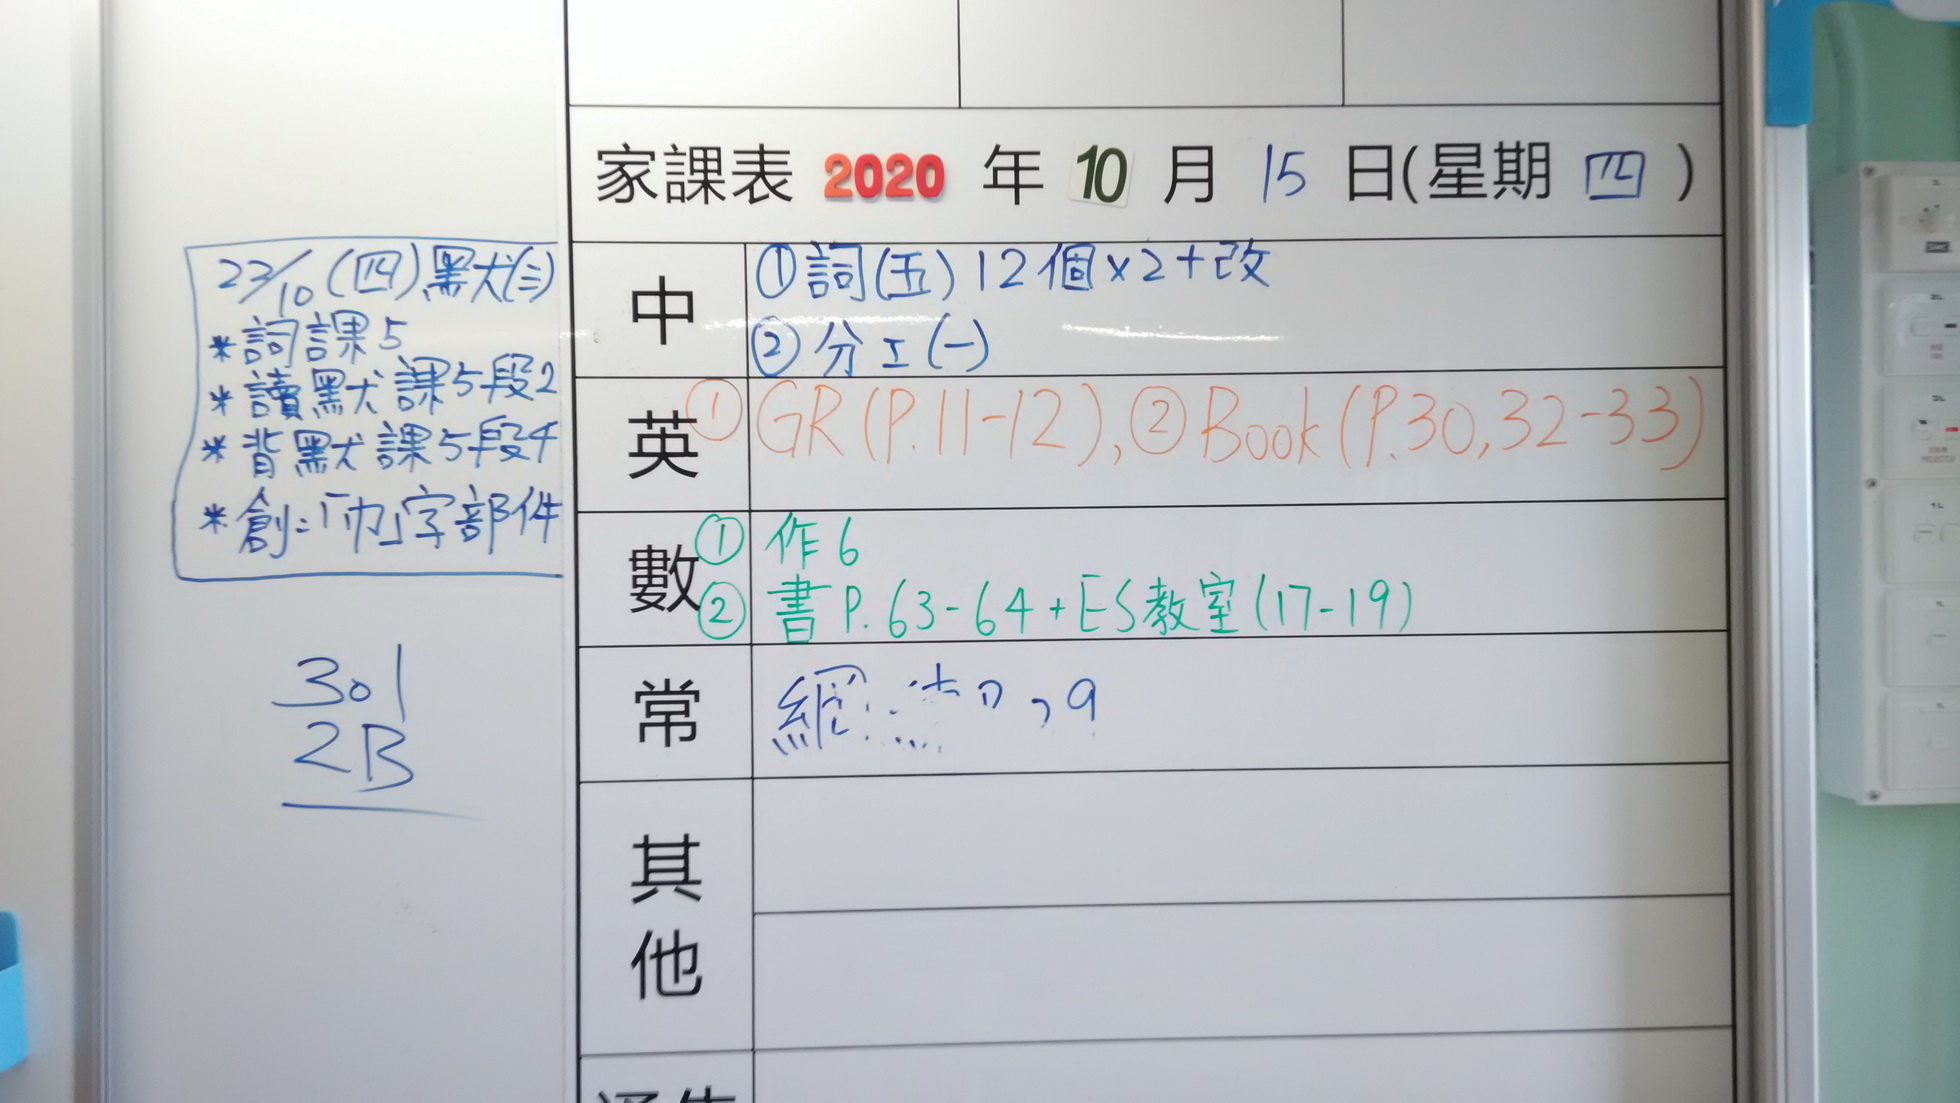 家課表 2020 年 10 月 15 日(星期 四 )
23/10 (四) 默(三)
*詞課5
*讀默課5段2
*背默課5段4
*創:「巾」字部件
301
2B
中
①詞(五)12個×2+改
②分工(一)
英
①GR(P.11-12),②Book(P.30,32-33)
數
①作6
②書P.63-64+ES教室(17-19)
常
網 , 9
其他